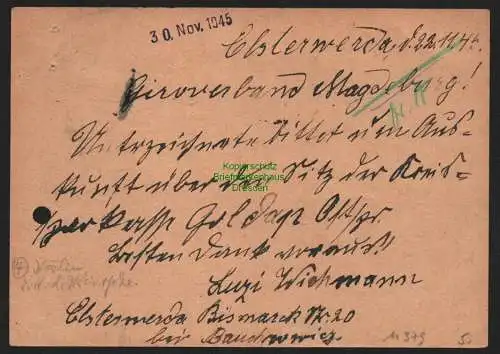 30. Nov. 1945
Elsterwerda, d. 22.11.45.
Giroverband Magdeburg!
Unterzeichnete bittet um Aus-
kunft über den Sitz der Kreis-
sparkasse Goldap Ostpr.
Besten Dank voraus!
Luzi Wichmann
Elsterwerda Bismarckstr. 20
bei
Kopierschutz
Briefmarkenhaus
Dresden
11 379
5.